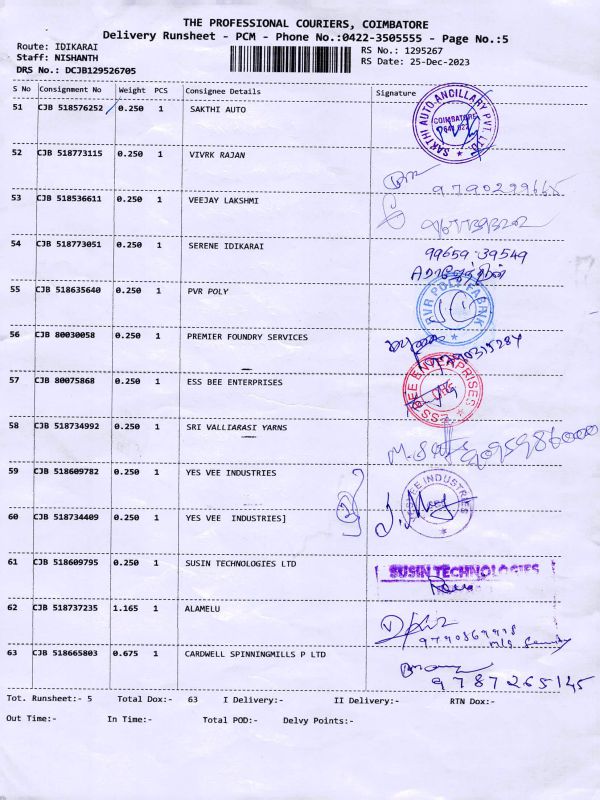 THE PROFESSIONAL COURIERS, COIMBATORE
Delivery Runsheet - PCM - Phone No.:0422-3505555 - Page No.:5
Route: IDIKARAI RS No.: 1295267
Staff: NISHANTH RS Date: 25-Dec-2023
DRS No.: DCJB129526705
S No Consignment No Weight PCS Consignee Details Signature
51 CJB 518576252 0.250 1 SAKTHI AUTO
SAKTHI AUTO ANCILLARY PVT. LTD.
COIMBATORE
52 CJB 518773115 0.250 1 VIVRK RAJAN
9790299665
53 CJB 518536611 0.250 1 VEEJAY LAKSHMI
54 CJB 518773051 0.250 1 SERENE IDIKARAI 99659 39549
55 CJB 518635640 0.250 1 PVR POLY
PVR POLY FABRIK
56 CJB 80030058 0.250 1 PREMIER FOUNDRY SERVICES
57 CJB 80075868 0.250 1 ESS BEE ENTERPRISES
ESS BEE ENTERPRISES
58 CJB 518734992 0.250 1 SRI VALLIARASI YARNS
59 CJB 518609782 0.250 1 YES VEE INDUSTRIES
INDUSTRIES
60 CJB 518734409 0.250 1 YES VEE INDUSTRIES]
61 CJB 518609795 0.250 1 SUSIN TECHNOLOGIES LTD
SUSIN TECHNOLOGIES
62 CJB 518737235 1.165 1 ALAMELU
63 CJB 518665803 0.675 1 CARDWELL SPINNINGMILLS P LTD
9787265145
Tot. Runsheet:- 5 Total Dox:- 63 I Delivery:- II Delivery:- RTN Dox:-
Out Time:- In Time:- Total POD:- Delvy Points:-